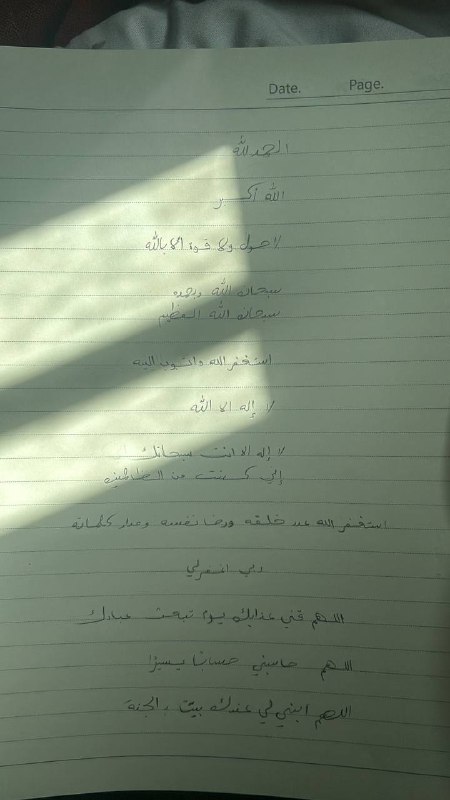 Date. Page.
الحمد لله
الله أكبر
لا حول ولا قوة الا بالله
سبحان الله وبحمده
سبحان الله العظيم
استغفر الله واتوب اليه
لا إله الا الله
لا إله الا انت سبحانك
إني كنت من الظالمين
استغفر الله عدد خلقه ورضا نفسه ومداد كلماته
ربي اغفرلي
اللهم قني عذابك يوم تبعث عبادك
اللهم حاسبني حسابا يسيرًا
اللهم ابني لي عندك بيت بالجنة